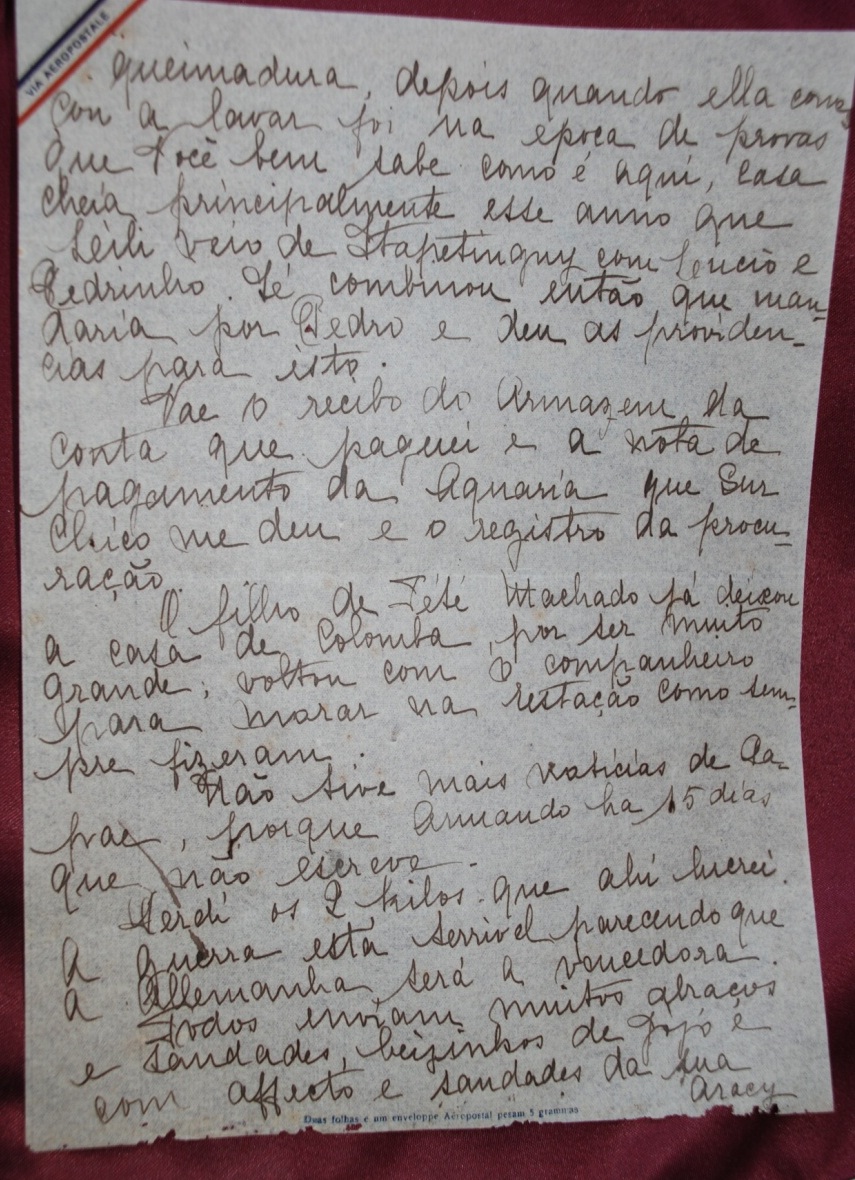 VIA AEROPOSTALE
queimadura, depois quando ella come
çou a lavar foi na epoca de provas
que Você bem sabe como é aqui, casa
cheia principalmente esse anno que
Leili veio de Itapetinguy com Lucio e
Pedrinho. Zé combinou então que man-
daria por Pedro e deu as providen-
cias para isto.
Vae o recibo do Armazem da
conta que paguei e a nota de
pagamento da Aquaria que Snr
Chico me deu e o registro da procu-
ração.
O filho de Tété Machado já deixou
a casa de Colomba, por ser muito
grande; voltou com o companheiro
para morar na Estação como sem-
pre fizeram.
Não tive mais noticias de Pa-
pae, porque Armando ha 15 dias
que não escreve.
Perdi os 2 kilos que ahi lucrei.
A guerra está terrivel parecendo que
a Allemanha será a vencedora.
Todos enviam muitos abraços
e saudades, beijinhos de Jojó e
com affecto e saudades da sua
Aracy
Duas folhas e um enveloppe Aéropostal pesam 5 grammas